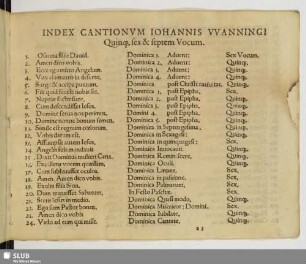 INDEX CANTIONVM IOHANNIS VVANNINGI
Quinq, sex & septem Vocum.
1. Osanna filio Dauid. Dominica 1. Aduent: Sex Vocum.
2. Amen dico vobis. Dominica 2. Aduent: Quinq.
3. Ecce ego mitto Angelum. Dominica 3. Aduent: Quinq.
4. Vox clamantis in deserto. Dominica 4. Aduent: Quinq.
5. Surge & accipe puerum. Dominica post Quinq.
6. Fili quid fecisti nobis sic. Dominica 1. post Epipha. Sex.
7. Nuptiæ factæ sunt. Dominica 2. post Epipha. Quinq.
8. Cum descendisset Iesus. Dominica 3. post Epipha. Quinq.
9. Domini 4. post Epipha. Quinq.
10. Domine Dominica 5. post Epipha. Quinq.
11. Simile est regnum cœlorum. Dominica in Septuagesima. Quinq.
12. Dominica in Sexages: Quinq.
13. Assumpsit autem Iesus. Dominica in quinquages: Sex.
14. Angelus Domini. Dominica Quinq.
15. Dixit Domini mulieri Cana. Dominica Reminiscere. Quinq.
16. Dominica Oculi. Quinq.
17. Cum subleuasset oculos. Dominica Lætare. Sex.
18. Amen Amen dico vobis. Dominica in passione. Sex.
19. Dominica Palmarum. Sex.
20. Dum transisset Sabatum. In Festo Paschæ. Sex.
21. Stetit Iesus in medio. Dominica Quasi modo. Quinq.
22. Ego sum Pastor bonus. Dominica Misericor: Domini. Sex.
23. Amen dico vobis Dominica Iubilate. Quinq.
24. Vado ad eum qui misit. Dominica Cantate. Quinq.
SLUB
Wir führen Wissen.